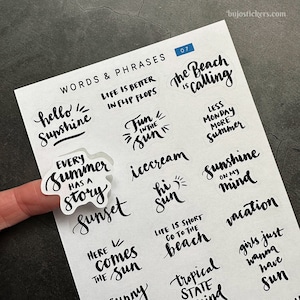 bujostickers.com
WORDS & PHRASES
07
hello
Sunshine
LIFE IS BETTER
IN FLIP FLOPS
The Beach
is Calling
Fun
IN THE
Sun
LESS
MONDAY
MORE
SUMMER
EVERY
Summer
HAS A
Story
icecream
Sunshine
ON my
MIND
Sunset
hi
Sun
LIFE IS SHORT
GO TO THE
beach
vacation
HERE
COMES
THE Sun
girls just
wanna
have
Sun
tropical
STATE